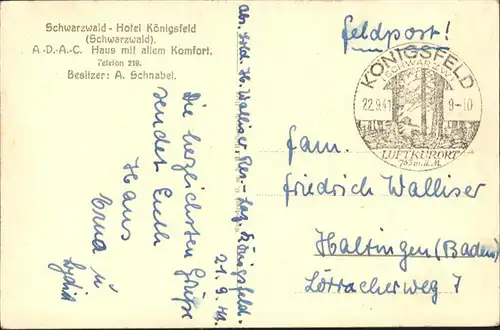 Schwarzwald - Hotel Königsfeld
(Schwarzwald).
A.-D.-A.-C. Haus mit allem Komfort.
Telefon 219.
Besitzer: A. Schnabel.
Die herzlichsten Grüße
sendet Euch
Hans
Erna u
Lydia
Abs. Sold. H. Walliser, Res.-Laz. Königsfeld.
21.9.41.
Feldpost!
KÖNIGSFELD
(SCHWARZW)
22.9.41 9-10
LUFTKURORT
763 m ü. M.
Fam.
Friedrich Walliser
Haltingen (Baden)
Lörracherweg 7